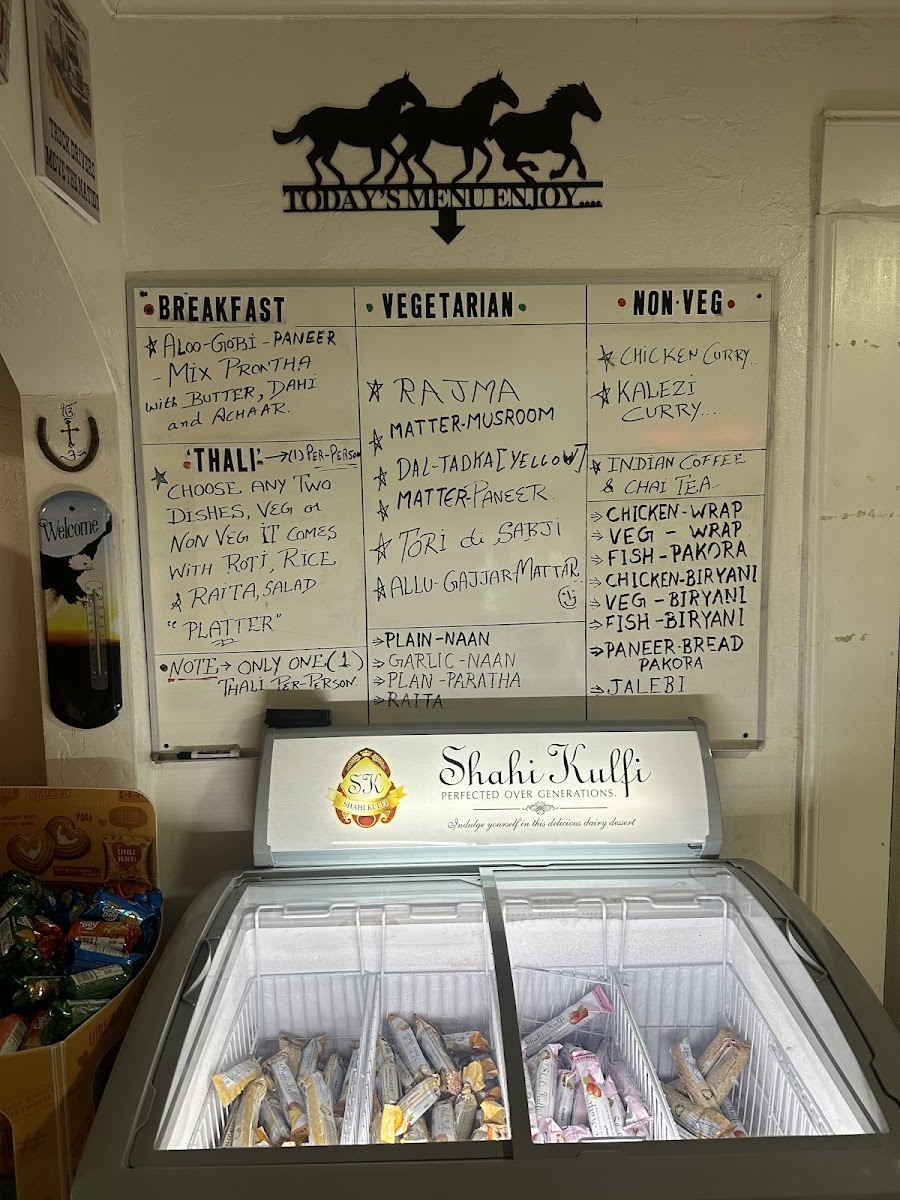 TRUCK DRIVERS
MOVE THE NATION
TODAY'S MENU ENJOY....
BREAKFAST
ALOO-GOBI-PANEER
- MIX PRONTHA
with BUTTER, DAHI
and ACHAAR.
'THALI' → (1) PER-PERSON
CHOOSE ANY TWO
DISHES, VEG or
NON VEG IT COMES
WITH ROTI, RICE
& RAITA, SALAD
"PLATTER"
NOTE → ONLY ONE (1)
THALI PER-PERSON
VEGETARIAN
RAJMA
MATTER-MUSROOM
DAL-TADKA [YELLOW]
MATTER-PANEER
TORI di SABJI
ALLU-GAJJAR-MATTAR
⇒ PLAIN-NAAN
⇒ GARLIC-NAAN
⇒ PLAN-PARATHA
⇒ RAITA
NON-VEG
CHICKEN CURRY..
KALEZI
CURRY...
INDIAN COFFEE
& CHAI TEA..
⇒ CHICKEN-WRAP
⇒ VEG - WRAP
⇒ FISH-PAKORA
⇒ CHICKEN-BIRYANI
⇒ VEG-BIRYANI
⇒ FISH-BIRYANI
⇒ PANEER-BREAD
PAKORA
⇒ JALEBI
Welcome
SK
SHAHI KULFI
Shahi Kulfi
PERFECTED OVER GENERATIONS.
Indulge yourself in this delicious dairy dessert